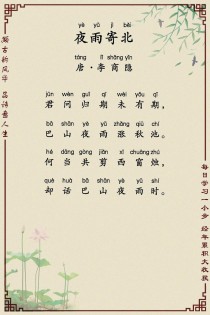 yè yǔ jì běi
夜雨寄北
táng lǐ shāng yǐn
唐·李商隐
jūn wèn guī qī wèi yǒu qī
君问归期未有期，
bā shān yè yǔ zhǎng qiū chí
巴山夜雨涨秋池。
hé dāng gòng jiǎn xī chuāng zhú
何当共剪西窗烛，
què huà bā shān yè yǔ shí
却话巴山夜雨时。
每日学习一小步 经年累积大收获